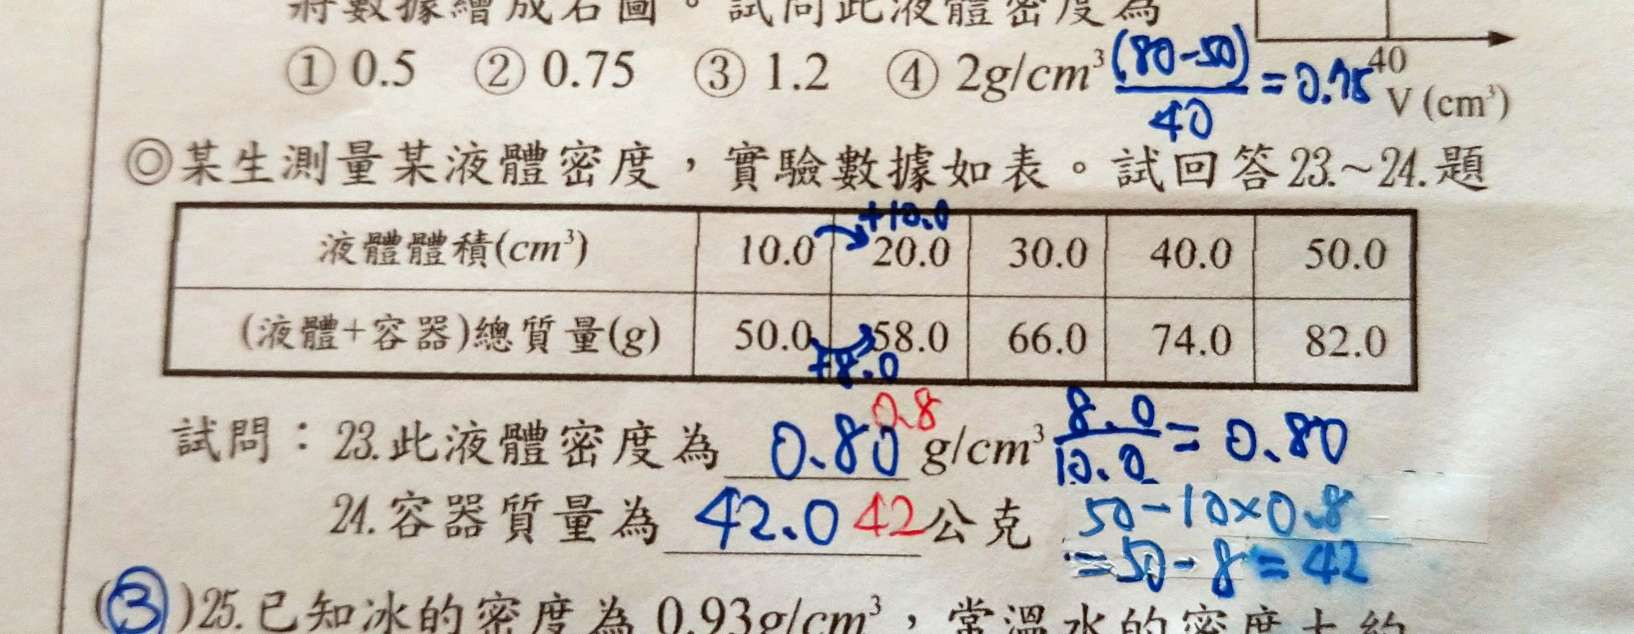 將數據繪成右圖。試問此液體密度為
① 0.5 ② 0.75 ③ 1.2 ④ 2g/cm³ (80-50)/40 = 0.75
40
V (cm³)
◎某生測量某液體密度，實驗數據如表。試回答23.~24.題
+10.0
液體體積(cm³) 10.0 20.0 30.0 40.0 50.0
(液體+容器)總質量(g) 50.0 58.0 66.0 74.0 82.0
+8.0
試問：23.此液體密度為 0.80 0.8 g/cm³ 8.0/10.0 = 0.80
24.容器質量為 42.0 42 公克 50-10×0.8
=50-8=42
(③)25.已知冰的密度為 0.93g/cm³，常溫水的密度大約